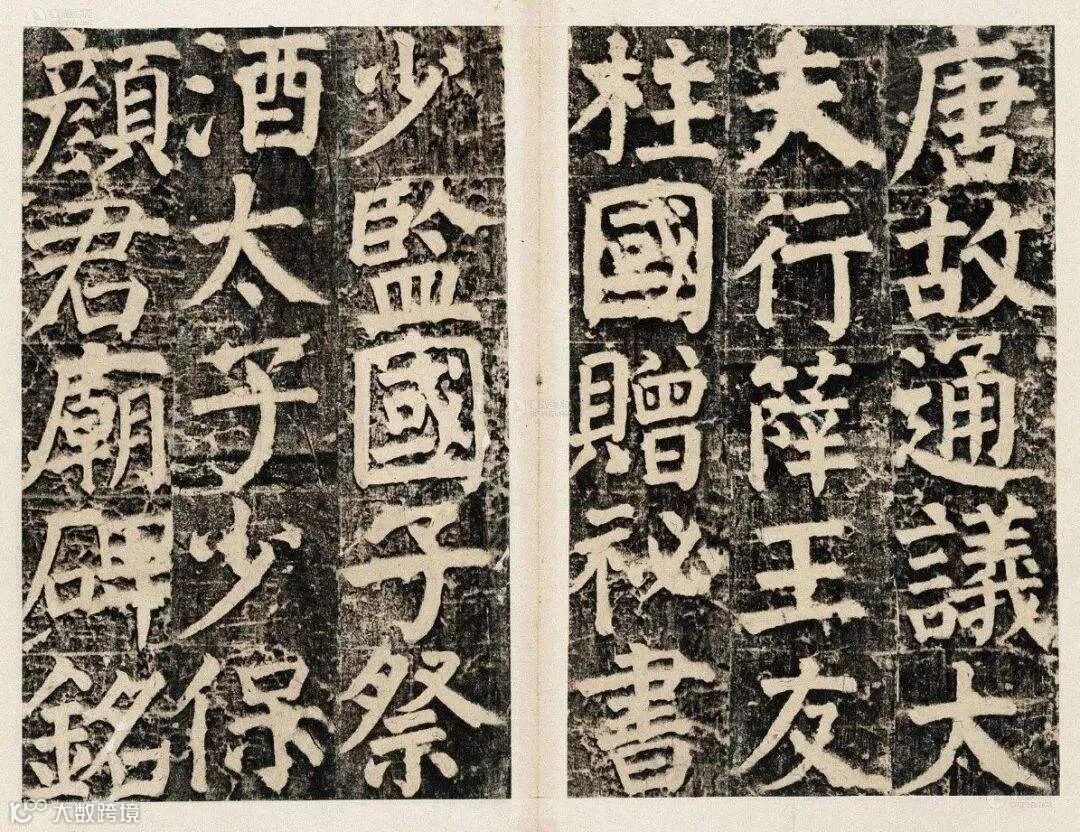 唐故通議大
夫行薛王友
柱國贈祕書
少監國子祭
酒太子少保
顏君廟碑銘
大数跨境